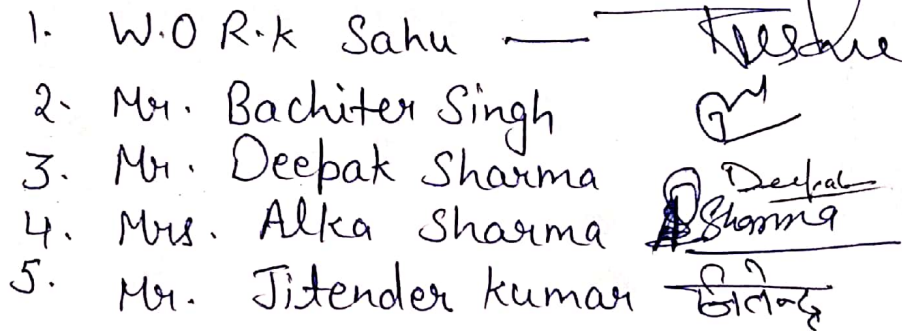 1. W.O R.k Sahu —
2. Mr. Bachiter Singh
3. Mr. Deepak Sharma Deepak
4. Mrs. Alka Sharma Sharma
5. Mr. Jitender kumar जितेन्द्र